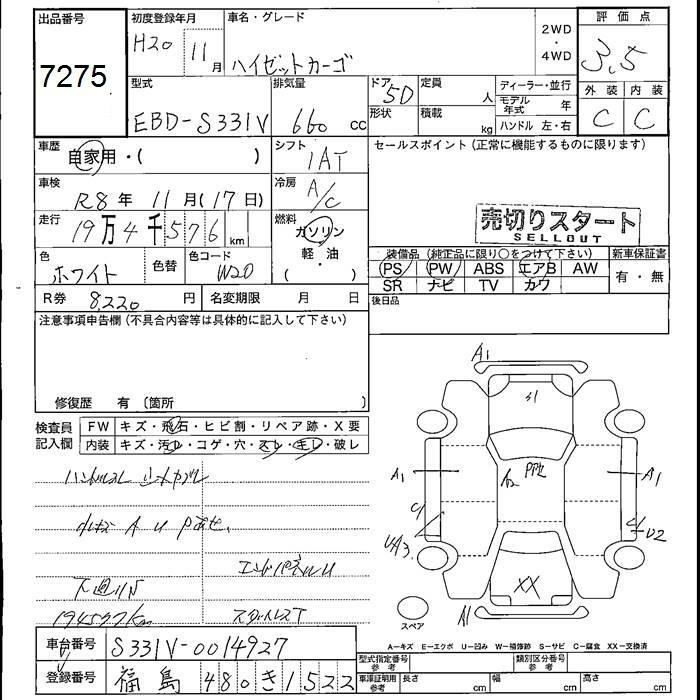 出品番号
7275
初度登録年月
H20 11月
車名・グレード
ハイゼットカーゴ
2WD
・
4WD
評価点
3.5
外装 内装
C C
型式
EBD-S331V
排気量
660 cc
ドア 5D
形状
定員 人
積載 kg
ディーラー・並行
モデル年式 年
ハンドル 左・右
車歴
自家用・( )
シフト
IAT
車検
R8年 11月(17日)
冷房
A/C
走行
19万4千576km
燃料
ガソリン
軽・油
( )
色
ホワイト
色替
色コード
W20
R券 8,220円
名変期限 月 日
セールスポイント (正常に機能するものに限ります)
売切りスタート
SELLOUT
装備品 (純正品に限り○をつけて下さい)
新車保証書
PS PW ABS エアB AW
SR ナビ TV カワ
有・無
後日品
注意事項申告欄 (不具合内容等は具体的に記入して下さい)
修復歴 有 〔箇所
検査員
記入欄
FW キズ・飛石・ヒビ割・リペア跡・X要
内装 キズ・汚レ・コゲ・穴・スレ・モレ・破レ
ハンドルスレ
A U
エンドパネルU
下廻りN
194577km
スタッドレスT
A1
S1
A1
A2
PPL
A1
UA3
U2
XX
A1
スペア
A-キズ E-エクボ U-凹み W-補修跡 S-サビ C-腐食 XX-交換済
車台番号 S331V-0014927
登録番号 福島 480 き 1522
型式指定番号
参考
類別区分番号
参考
車庫証明用
参考
長さ cm
幅 cm
高さ cm